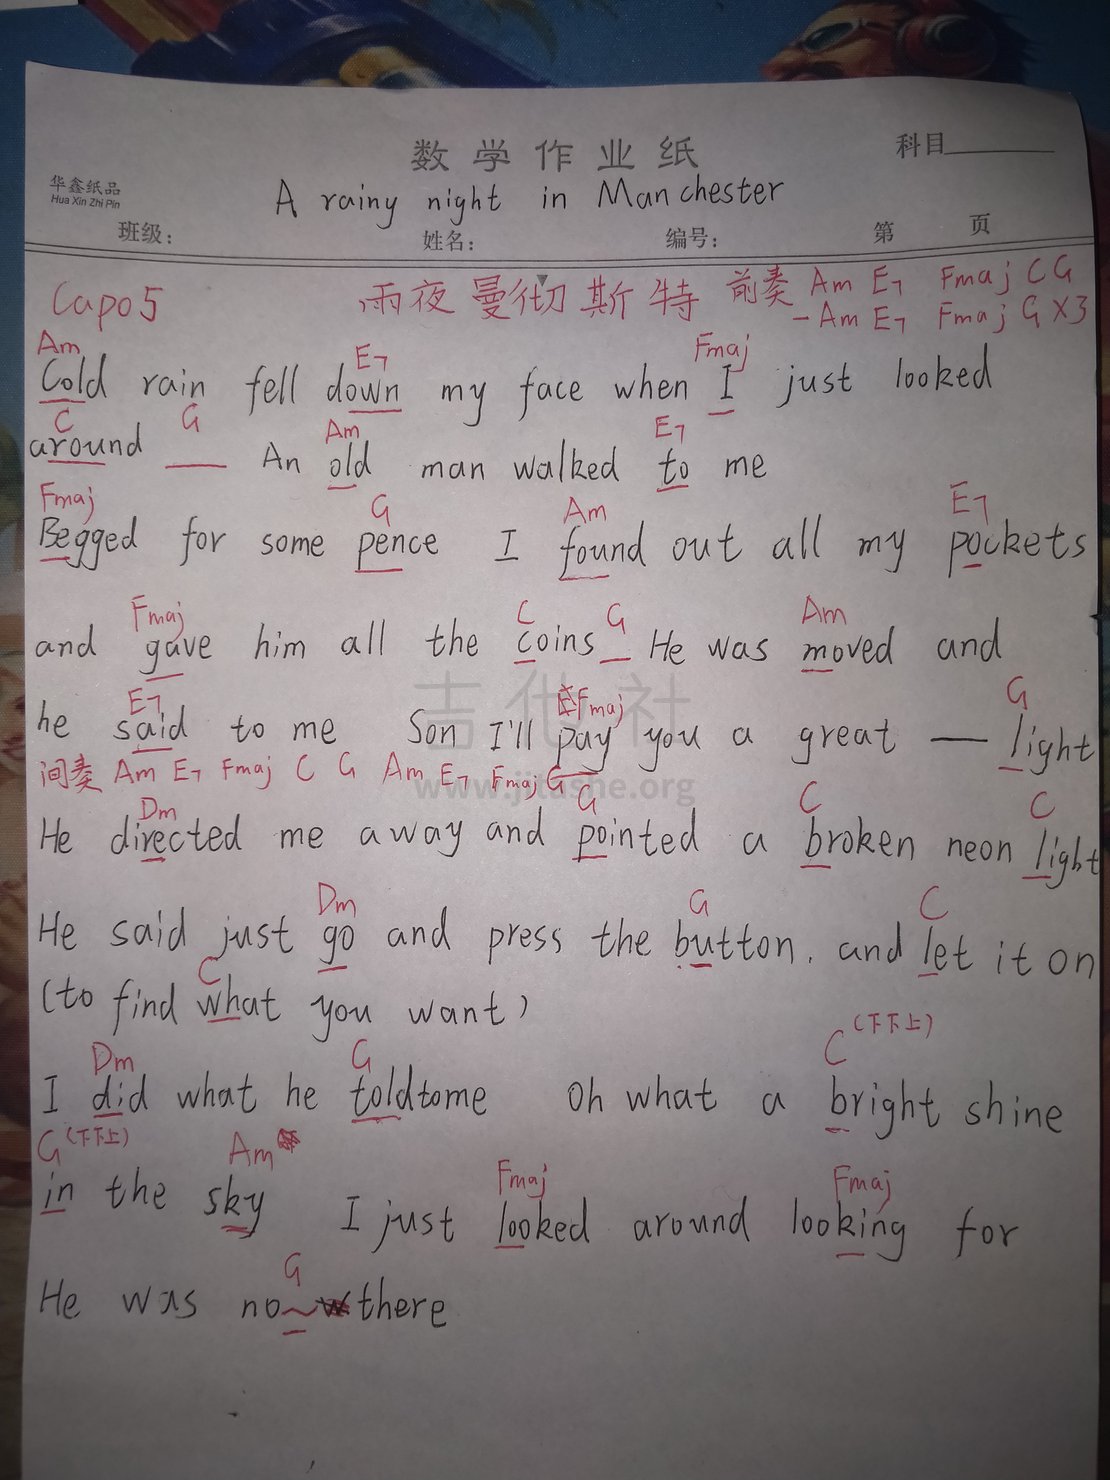 数学作业纸
科目
华鑫纸品
Hua Xin Zhi Pin
A rainy night in Manchester
班级： 姓名： 编号： 第 页
Capo5 雨夜曼彻斯特 前奏 Am E7 Fmaj C G
-Am E7 Fmaj G X3
Am E7 Fmaj
Cold rain fell down my face when I just looked
C G Am E7
around __ An old man walked to me
Fmaj G Am E7
Begged for some pence I found out all my pockets
Fmaj C G Am
and gave him all the coins _ He was moved and
E7 Fmaj G
he said to me Son I'll pay you a great — light
间奏 Am E7 Fmaj C G Am E7 Fmaj G
Dm G C C
He directed me away and pointed a broken neon light
Dm G C
He said just go and press the button. and let it on
C
(to find what you want)
Dm G C (下下上)
I did what he toldtome Oh what a bright shine
G (下下上) Am
in the sky I just looked around looking for
Fmaj Fmaj
G
He was no~there
吉他社
www.jitashe.org